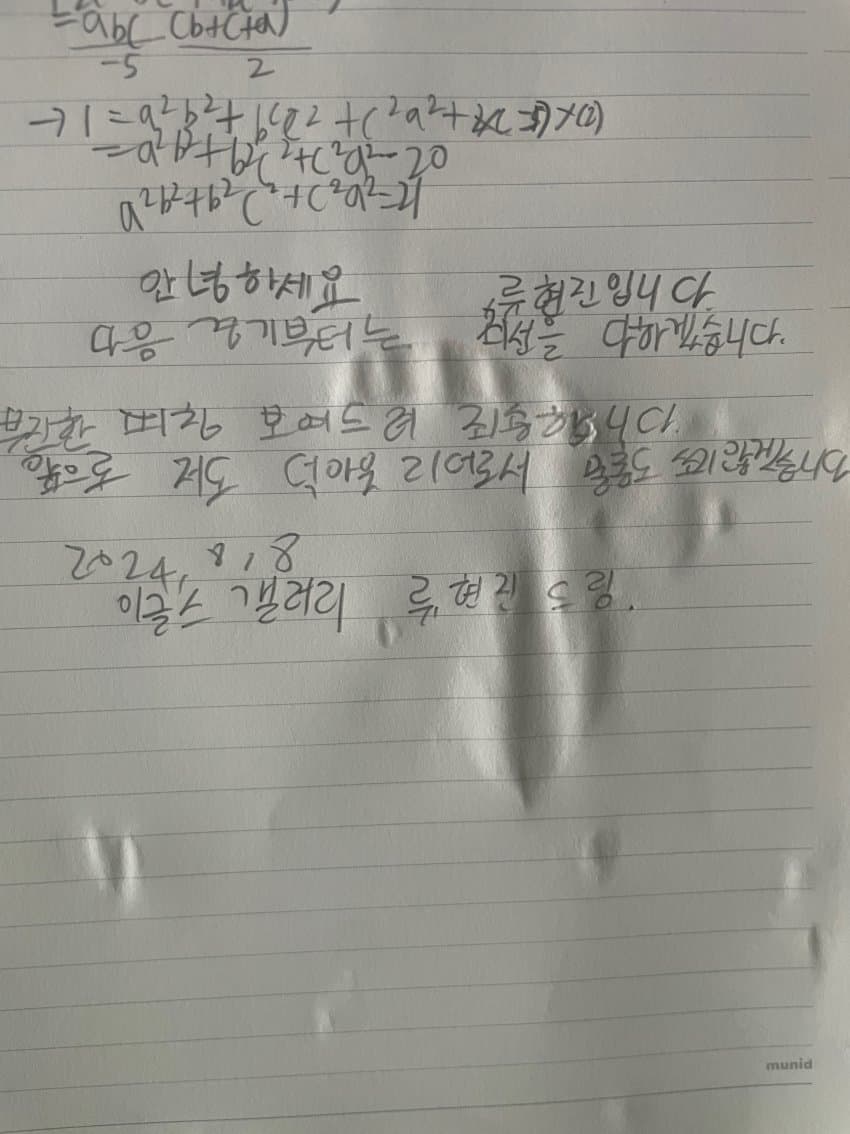 =abc (b+c+a)
-5 2
→ 1 = a²b²+b²c²+c²a²+2x(-5)x(2)
=a²b²+b²c²+c²a²-20
a²b²+b²c²+c²a²=21
안녕하세요 류현진입니다.
다음 경기부터는 최선을 다하겠습니다.
부진한 피칭 보여드려 죄송합니다.
앞으로 저도 덕아웃 리더로서 소홀하지않겠습니다
2024, 8, 8
이글스 갤러리 류현진 드림.
munid